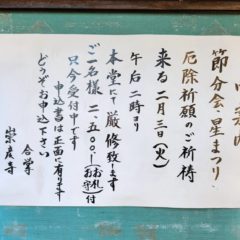 節分会・星まつり
厄除祈願のご祈祷
来る二月三日(火)
午后二時ヨリ
本堂にて厳修致します
ご一名様 二、五〇〇・(お札お守)付
只今受付中です
申込書は正面に有ります
どうぞお申込下さい
合掌